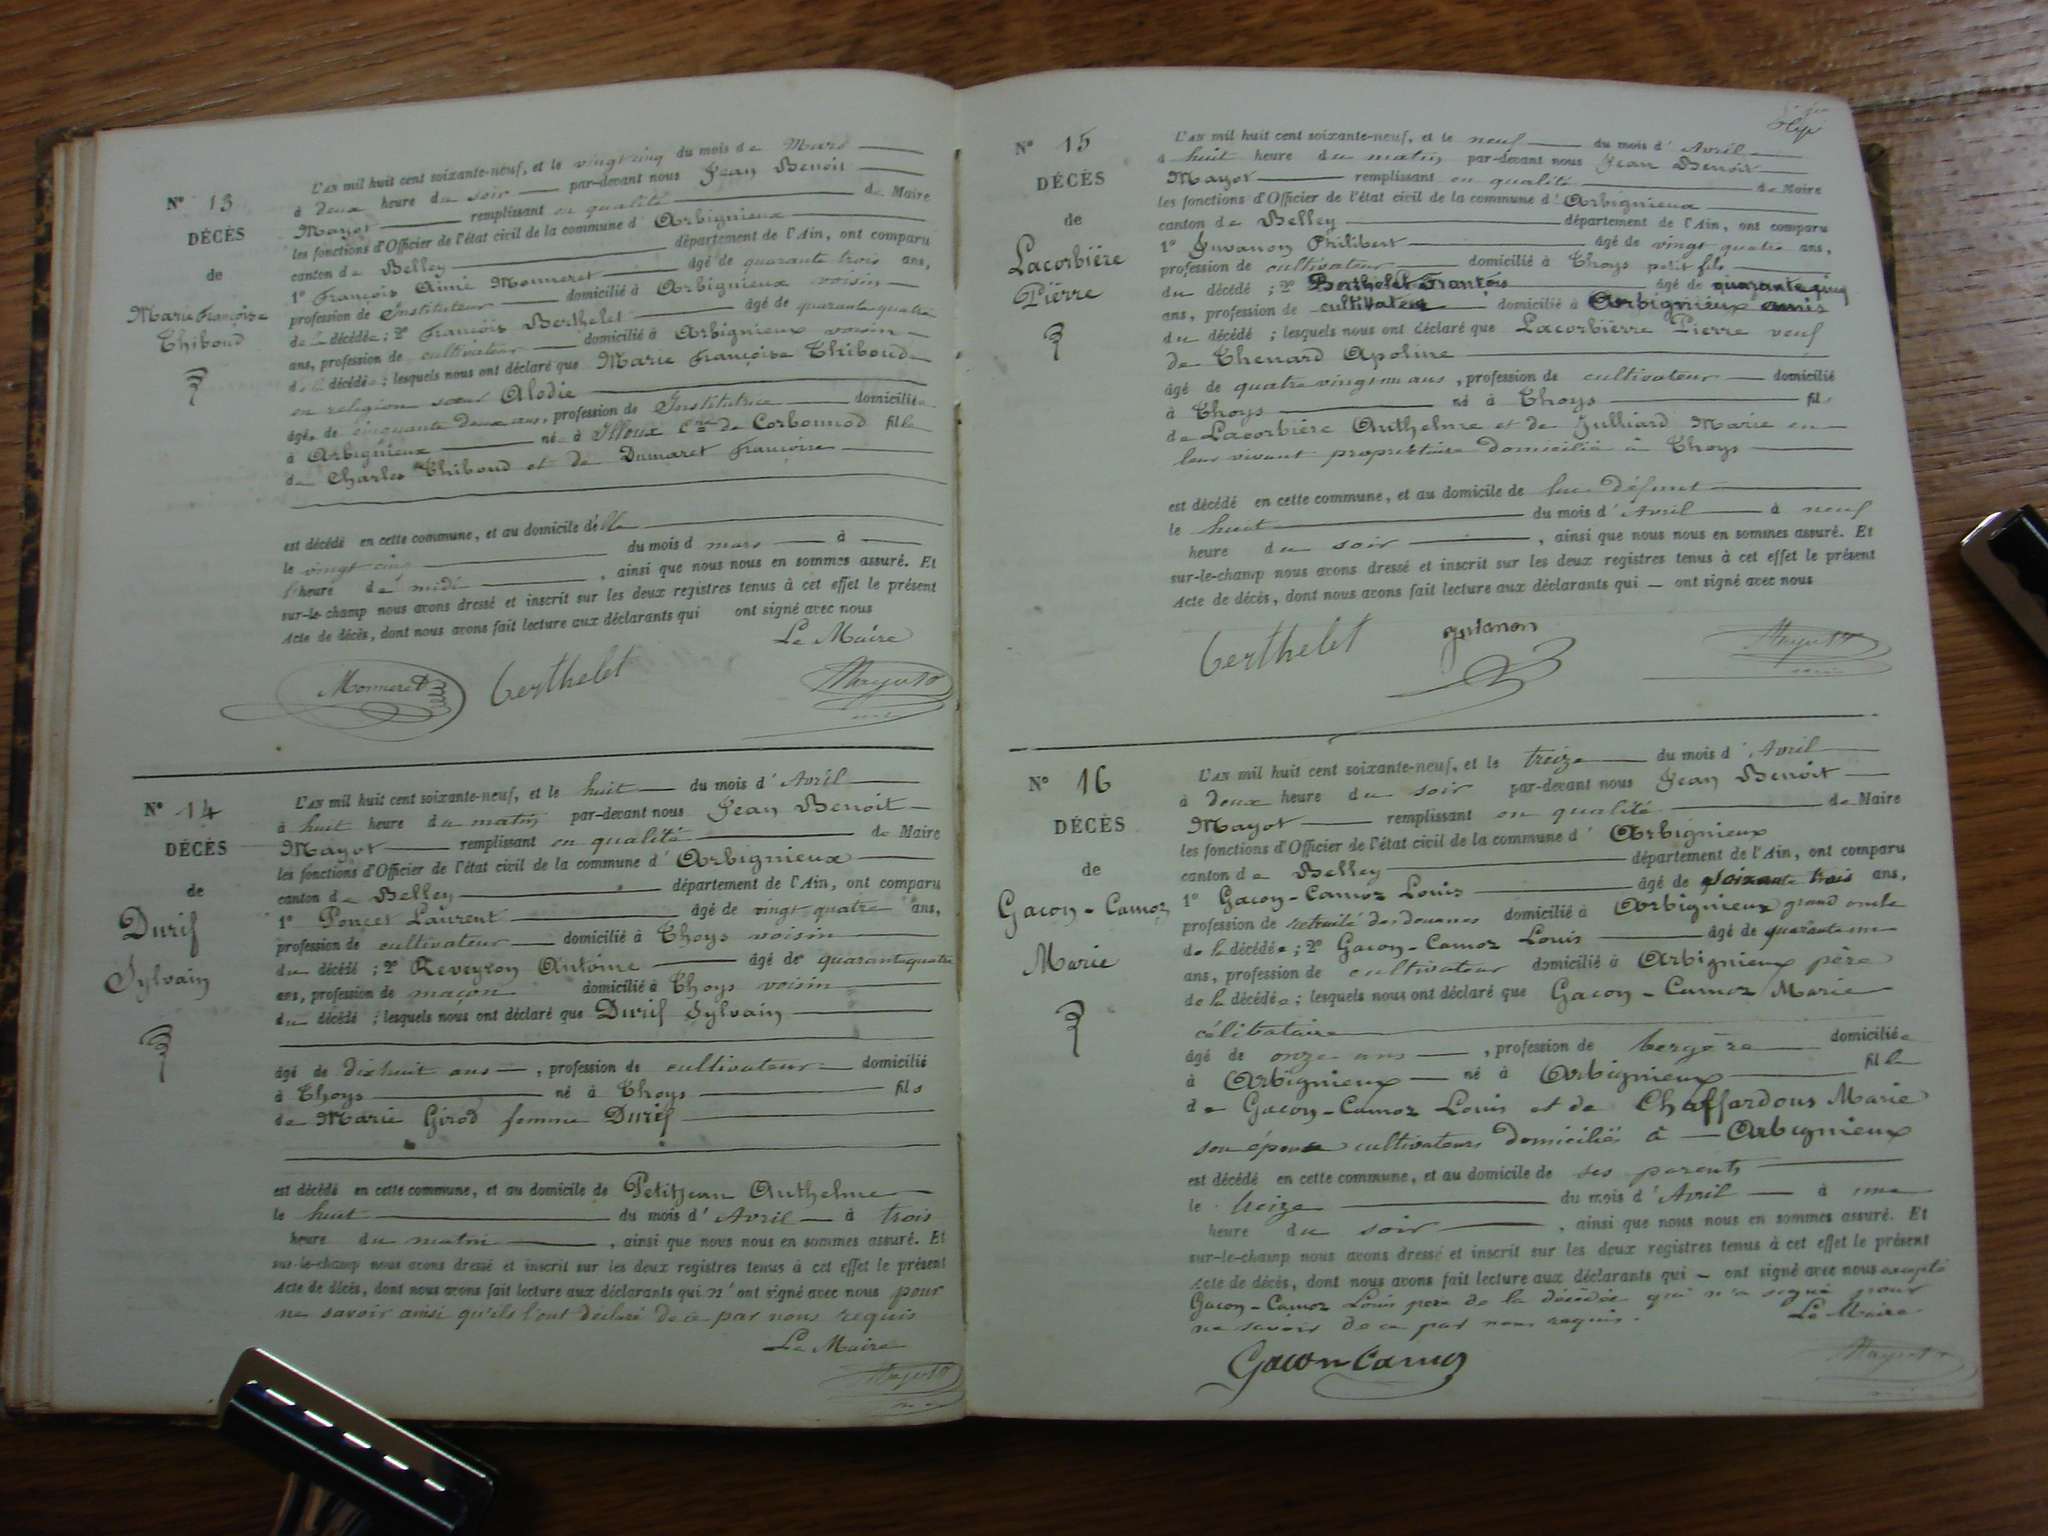 N° 13
DÉCÈS
de
Marie Françoise
Thiboud
L'AN mil huit cent soixante-neuf, et le vingt cinq du mois de Mars
à deux heure du soir par-devant nous Jean Benoit
Mayot remplissant en qualité de Maire
les fonctions d'Officier de l'état civil de la commune d'Arbignieux
canton de Belley département de l'Ain, ont comparu
1° François Aimé Monneret âgé de quarante trois ans,
profession de Instituteur domicilié à Arbignieux voisin
de la décédée; 2° François Berthelet âgé de quarante quatre
ans, profession de cultivateur domicilié à Arbignieux voisin
de la décédée; lesquels nous ont déclaré que Marie Françoise Thiboud
en religion sœur Alodie
âgée de cinquante deux ans, profession de Institutrice domiciliée
à Arbignieux née à Cne de Corbonnod fille
de Charles Thiboud et de Dumaret Françoise
est décédé en cette commune, et au domicile d'elle
le vingt cinq du mois d mars à
l'heure de midi, ainsi que nous nous en sommes assuré. Et
sur-le-champ nous avons dressé et inscrit sur les deux registres tenus à cet effet le présent
Acte de décès, dont nous avons fait lecture aux déclarants qui ont signé avec nous
Le Maire
Monneret berthelet
N° 14
DÉCÈS
de
Durif
Sylvain
L'AN mil huit cent soixante-neuf, et le huit du mois d'Avril
à huit heure du matin par-devant nous Jean Benoit
Mayot remplissant en qualité de Maire
les fonctions d'Officier de l'état civil de la commune d'Arbignieux
canton de Belley département de l'Ain, ont comparu
1° Poncet Laurent âgé de vingt quatre ans,
profession de cultivateur domicilié à Thoys voisin
du décédé; 2° Reveyron Antoine âgé de quarante quatre
ans, profession de maçon domicilié à Thoys voisin
du décédé; lesquels nous ont déclaré que Durif Sylvain
âgé de dixhuit ans, profession de cultivateur domicilié
à Thoys né à Thoys fils
de Marie Girod femme Durif
est décédé en cette commune, et au domicile de Petitjean Anthelme
le huit du mois d'Avril à trois
heure du matin, ainsi que nous nous en sommes assuré. Et
sur-le-champ nous avons dressé et inscrit sur les deux registres tenus à cet effet le présent
Acte de décès, dont nous avons fait lecture aux déclarants qui n'ont signé avec nous pour
ne savoir ainsi qu'ils l'ont déclaré de ce par nous requis
Le Maire
N° 15
DÉCÈS
de
Lacorbière
Pierre
L'AN mil huit cent soixante-neuf, et le neuf du mois d'Avril
à huit heure du matin par-devant nous Jean Benoit
Mayot remplissant en qualité de Maire
les fonctions d'Officier de l'état civil de la commune d'Arbignieux
canton de Belley département de l'Ain, ont comparu
1° Juvanon Philibert âgé de vingt quatre ans,
profession de cultivateur domicilié à Thoys petit fils
du décédé; 2° Berthelet François âgé de quarante cinq
ans, profession de cultivateur domicilié à Arbignieux amis
du décédé; lesquels nous ont déclaré que Lacorbière Pierre veuf
de Thenard Apoline
âgé de quatre vingt un ans, profession de cultivateur domicilié
à Thoys né à Thoys fils
de Lacorbière Anthelme et de Julliard Marie en
leur vivant propriétaire domicilié à Thoys
est décédé en cette commune, et au domicile de lui défunt
le huit du mois d'Avril à neuf
heure du soir, ainsi que nous nous en sommes assuré. Et
sur-le-champ nous avons dressé et inscrit sur les deux registres tenus à cet effet le présent
Acte de décès, dont nous avons fait lecture aux déclarants qui ont signé avec nous
berthelet
N° 16
DÉCÈS
de
Gacon-Camoz
Marie
L'AN mil huit cent soixante-neuf, et le treize du mois d'Avril
à deux heure du soir par-devant nous Jean Benoit
Mayot remplissant en qualité de Maire
les fonctions d'Officier de l'état civil de la commune d'Arbignieux
canton de Belley département de l'Ain, ont comparu
1° Gacon-Camoz Louis âgé de soixante trois ans,
profession de retraité des douanes domicilié à Arbignieux grand oncle
de la décédée; 2° Gacon-Camoz Louis âgé de quarante un
ans, profession de cultivateur domicilié à Arbignieux père
de la décédée; lesquels nous ont déclaré que Gacon-Camoz Marie
célibataire
âgé de onze ans, profession de bergère domiciliée
à Arbignieux né à Arbignieux fille
de Gacon-Camoz Louis et de Chaffardous Marie
son épouse cultivateurs domiciliés à Arbignieux
est décédé en cette commune, et au domicile de ses parents
le treize du mois d'Avril à une
heure du soir, ainsi que nous nous en sommes assuré. Et
sur-le-champ nous avons dressé et inscrit sur les deux registres tenus à cet effet le présent
Acte de décès, dont nous avons fait lecture aux déclarants qui ont signé avec nous excepté
Gacon-Camoz Louis père de la décédée qui n'a signé pour
ne savoir de ce par nous requis. Le Maire
Gacon Camoz